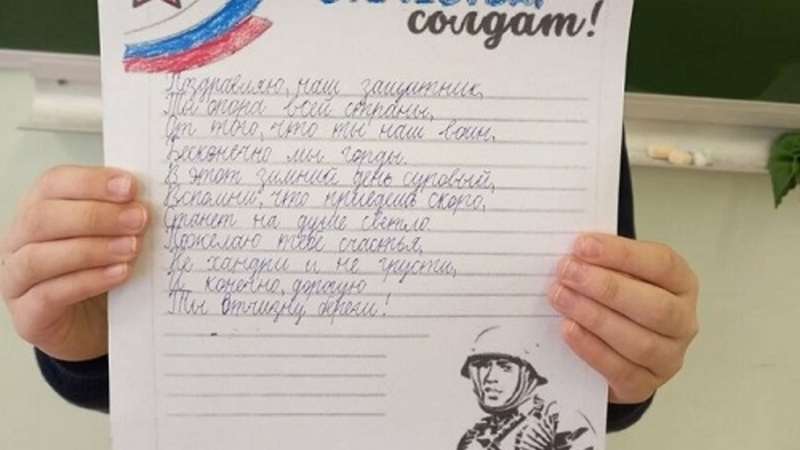 солдат!
Поздравляю, наш защитник,
Ты опора всей страны,
От того, что ты наш воин,
Бесконечно мы горды.
В этот зимний день суровый,
Вспомни, что приедешь скоро,
Станет на душе светло.
Пожелаю тебе счастья,
Не хандри и не грусти,
И конечно, дорогую
Ты отчизну береги!